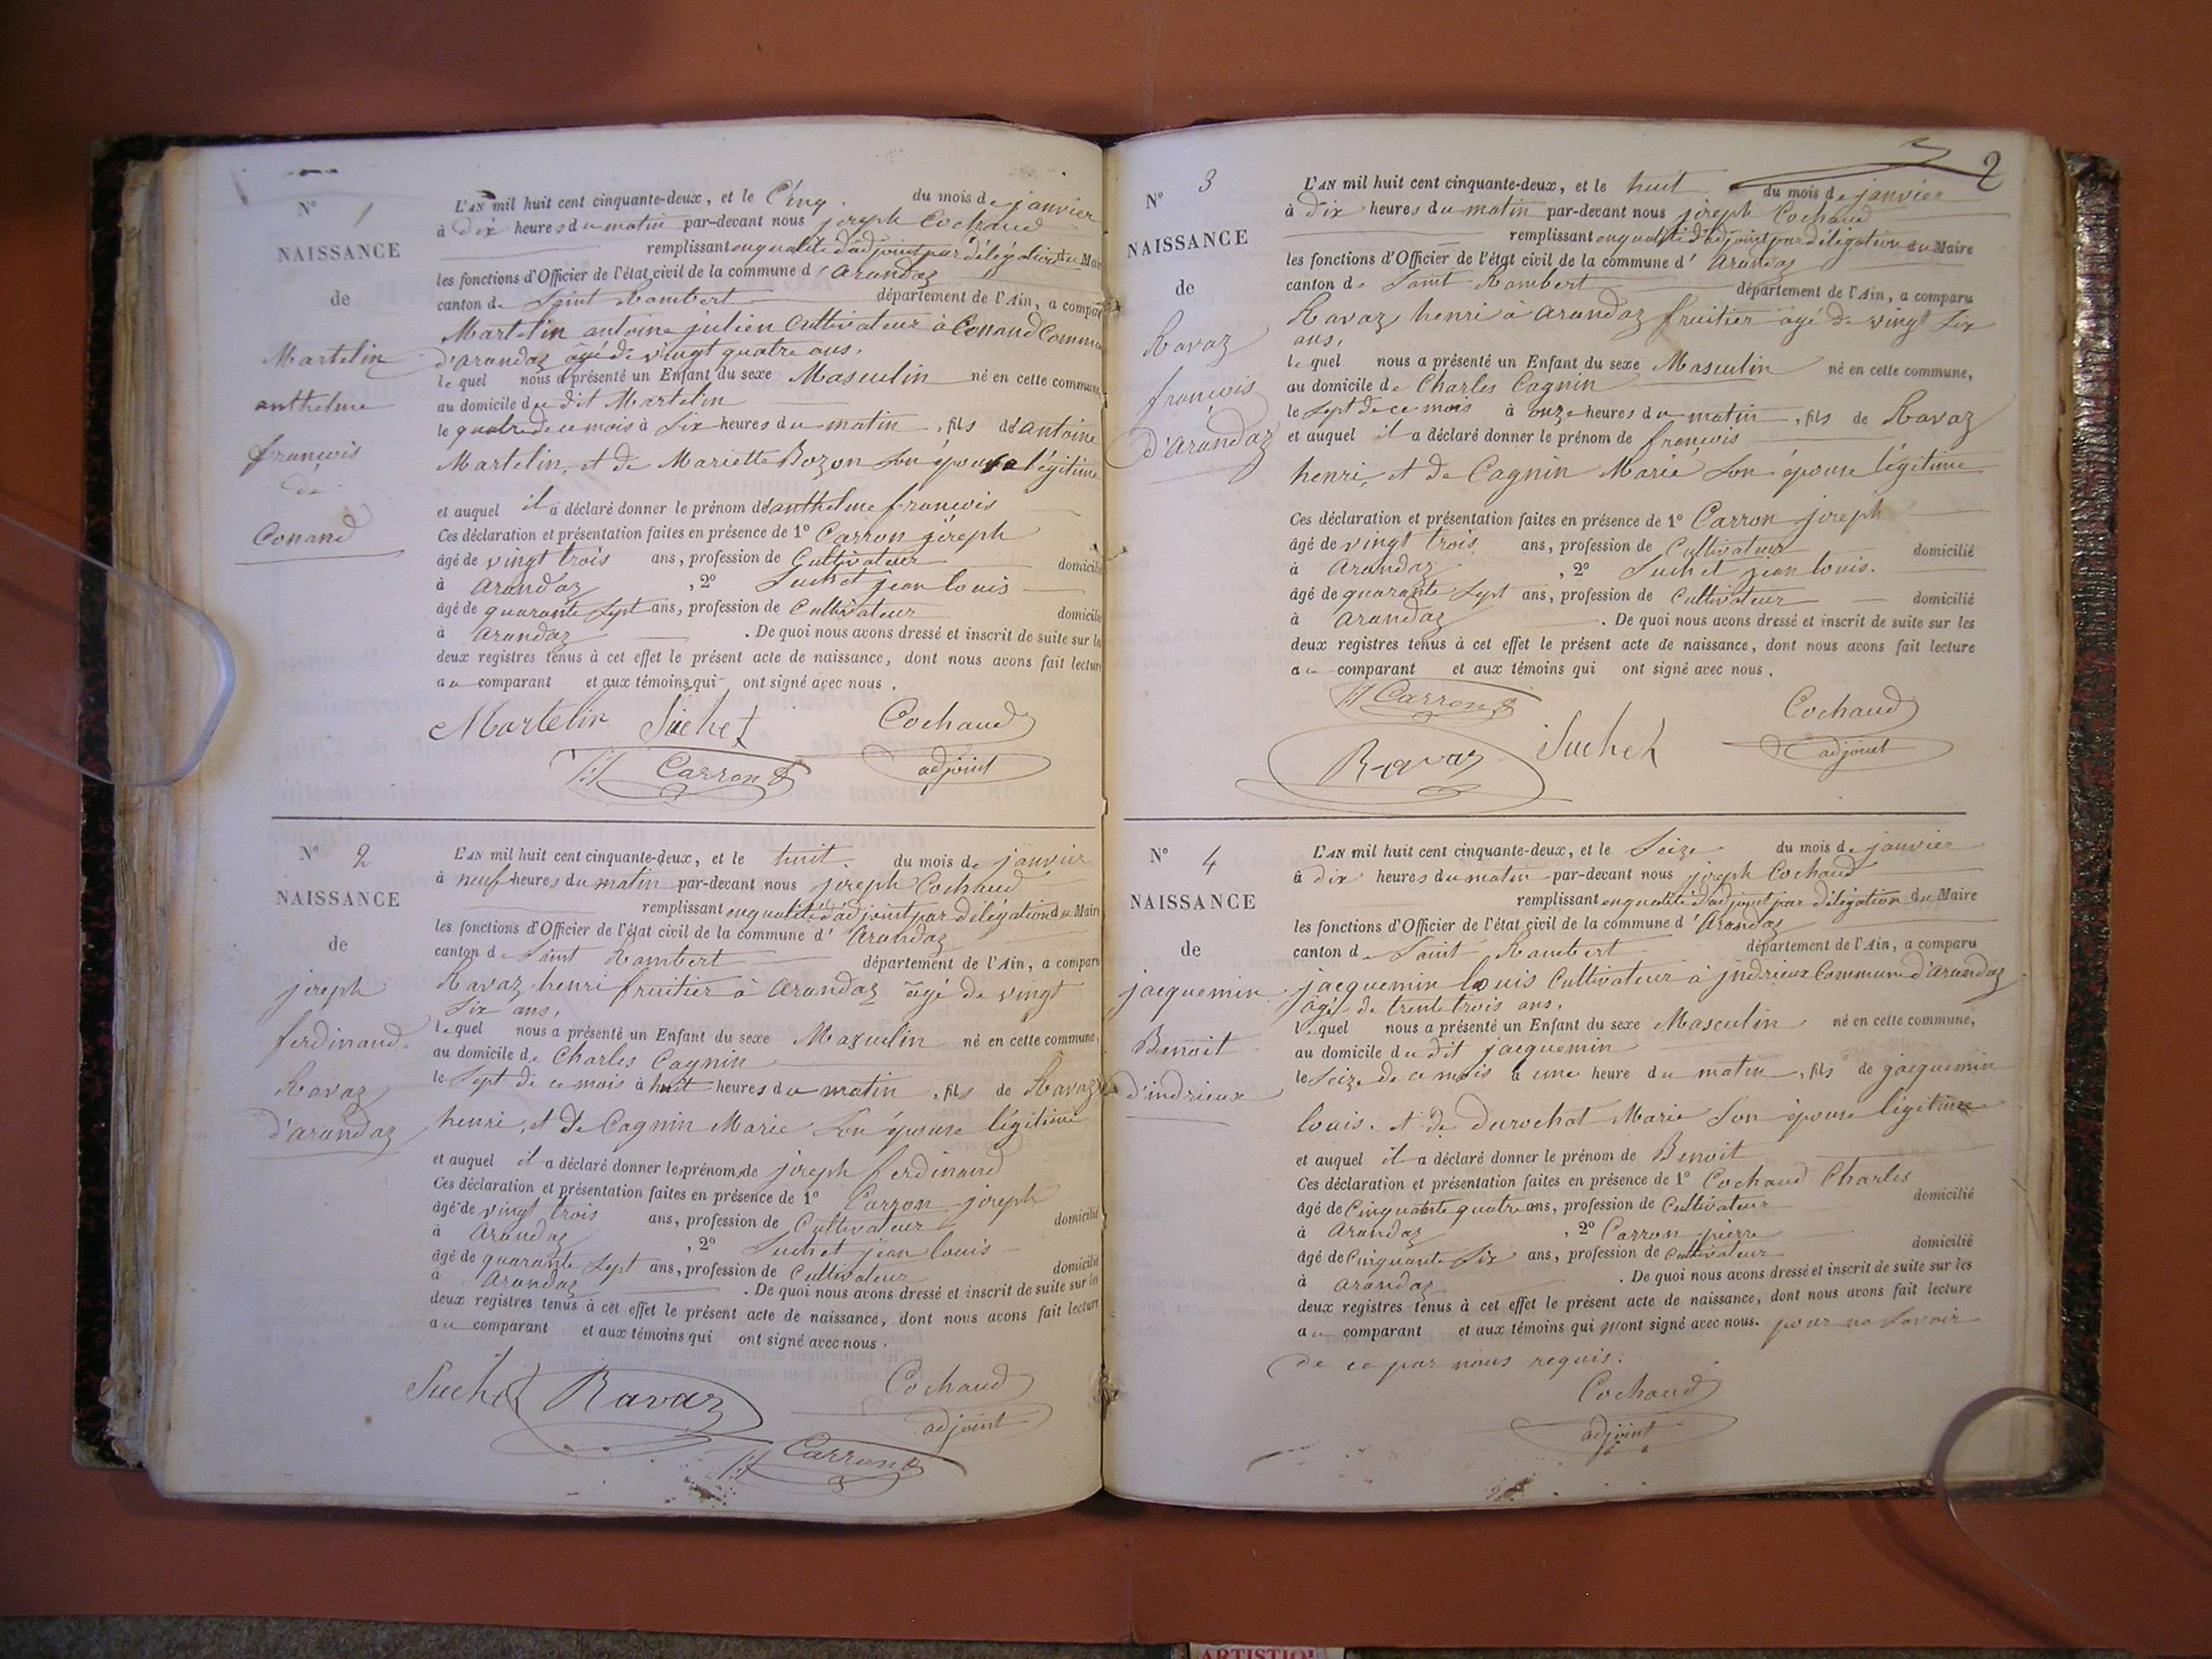 N° 1
NAISSANCE
de
Martelin
anthelme
françois
de
Conand
L'AN mil huit cent cinquante-deux, et le Cinq du mois de janvier
à Dix heures du matin par-devant nous joseph Cochaud
remplissant en qualité d'adjoint par délégation du Mai
les fonctions d'Officier de l'état civil de la commune d'arandaz
canton de Saint Rambert département de l'Ain, a compar
Martelin antoine julien Cultivateur à Conand Commu
d'arandaz âgé de vingt quatre ans,
lequel nous a présenté un Enfant du sexe Masculin né en cette commune
au domicile du dit Martelin
le quatre de ce mois à Six heures du matin, fils de antoine
Martelin, et de Mariette Bozon Son épouse légitime
et auquel il a déclaré donner le prénom de anthelme françois
Ces déclaration et présentation faites en présence de 1° Carron joseph
âgé de vingt trois ans, profession de Cultivateur domicilié
à arandaz, 2° Suchet jean louis
âgé de quarante Sept ans, profession de Cultivateur domicilié
à arandaz. De quoi nous avons dressé et inscrit de suite sur les
deux registres tenus à cet effet le présent acte de naissance, dont nous avons fait lecture
au comparant et aux témoins qui ont signé avec nous.
Martelin Suchet Cochaud
Carron adjoint
N° 2
NAISSANCE
de
joseph
ferdinand
Ravaz
d'arandaz
L'AN mil huit cent cinquante-deux, et le huit du mois de janvier
à neuf heures du matin par-devant nous joseph Cochaud
remplissant en qualité d'adjoint par délégation du Maire
les fonctions d'Officier de l'état civil de la commune d'arandaz
canton de Saint Rambert département de l'Ain, a comparu
Ravaz henri fruitier à arandaz âgé de vingt
Six ans,
lequel nous a présenté un Enfant du sexe Masculin né en cette commune,
au domicile de Charles Cagnin
le Sept de ce mois à huit heures du matin, fils de Ravaz
henri, et de Cagnin Marie Son épouse légitime
et auquel il a déclaré donner le prénom de joseph ferdinand
Ces déclaration et présentation faites en présence de 1° Carron joseph
âgé de vingt trois ans, profession de Cultivateur domicilié
à arandaz, 2° Suchet jean louis
âgé de quarante Sept ans, profession de Cultivateur domicilié
à arandaz. De quoi nous avons dressé et inscrit de suite sur les
deux registres tenus à cet effet le présent acte de naissance, dont nous avons fait lecture
au comparant et aux témoins qui ont signé avec nous.
Suchet Ravaz Cochaud
adjoint
Carron
2
N° 3
NAISSANCE
de
Ravaz
françois
d'arandaz
L'AN mil huit cent cinquante-deux, et le huit du mois de janvier
à Dix heures du matin par-devant nous joseph Cochaud
remplissant en qualité d'adjoint par délégation du Maire
les fonctions d'Officier de l'état civil de la commune d'arandaz
canton de Saint Rambert département de l'Ain, a comparu
Ravaz henri à arandaz fruitier âgé de vingt Six
ans,
lequel nous a présenté un Enfant du sexe Masculin né en cette commune,
au domicile de Charles Cagnin
le Sept de ce mois à onze heures du matin, fils de Ravaz
et auquel il a déclaré donner le prénom de françois
henri, et de Cagnin Marie Son épouse légitime
Ces déclaration et présentation faites en présence de 1° Carron joseph
âgé de vingt trois ans, profession de Cultivateur domicilié
à arandaz, 2° Suchet jean louis.
âgé de quarante Sept ans, profession de Cultivateur domicilié
à arandaz. De quoi nous avons dressé et inscrit de suite sur les
deux registres tenus à cet effet le présent acte de naissance, dont nous avons fait lecture
au comparant et aux témoins qui ont signé avec nous.
Carron Cochaud
Ravaz Suchet adjoint
N° 4
NAISSANCE
de
jacquemin
Benoit
d'indrieux
L'AN mil huit cent cinquante-deux, et le Seize du mois de janvier
à dix heures du matin par-devant nous joseph Cochaud
remplissant en qualité d'adjoint par délégation du Maire
les fonctions d'Officier de l'état civil de la commune d'Arandaz
canton de Saint Rambert département de l'Ain, a comparu
jacquemin louis Cultivateur à jndrieux Commune d'arandaz
âgé de trente trois ans,
lequel nous a présenté un Enfant du sexe Masculin né en cette commune,
au domicile du dit jacquemin
le Seize de ce mois à une heure du matin, fils de jacquemin
louis. et de durochat Marie Son épouse légitime
et auquel il a déclaré donner le prénom de Benoit
Ces déclaration et présentation faites en présence de 1° Cochaud Charles
âgé de Cinquante quatre ans, profession de Cultivateur domicilié
à arandaz, 2° Carron pierre
âgé de Cinquante Six ans, profession de Cultivateur domicilié
à arandaz. De quoi nous avons dressé et inscrit de suite sur les
deux registres tenus à cet effet le présent acte de naissance, dont nous avons fait lecture
au comparant et aux témoins qui n'ont signé avec nous. pour ne Savoir
de ce par nous requis.
Cochaud
adjoint